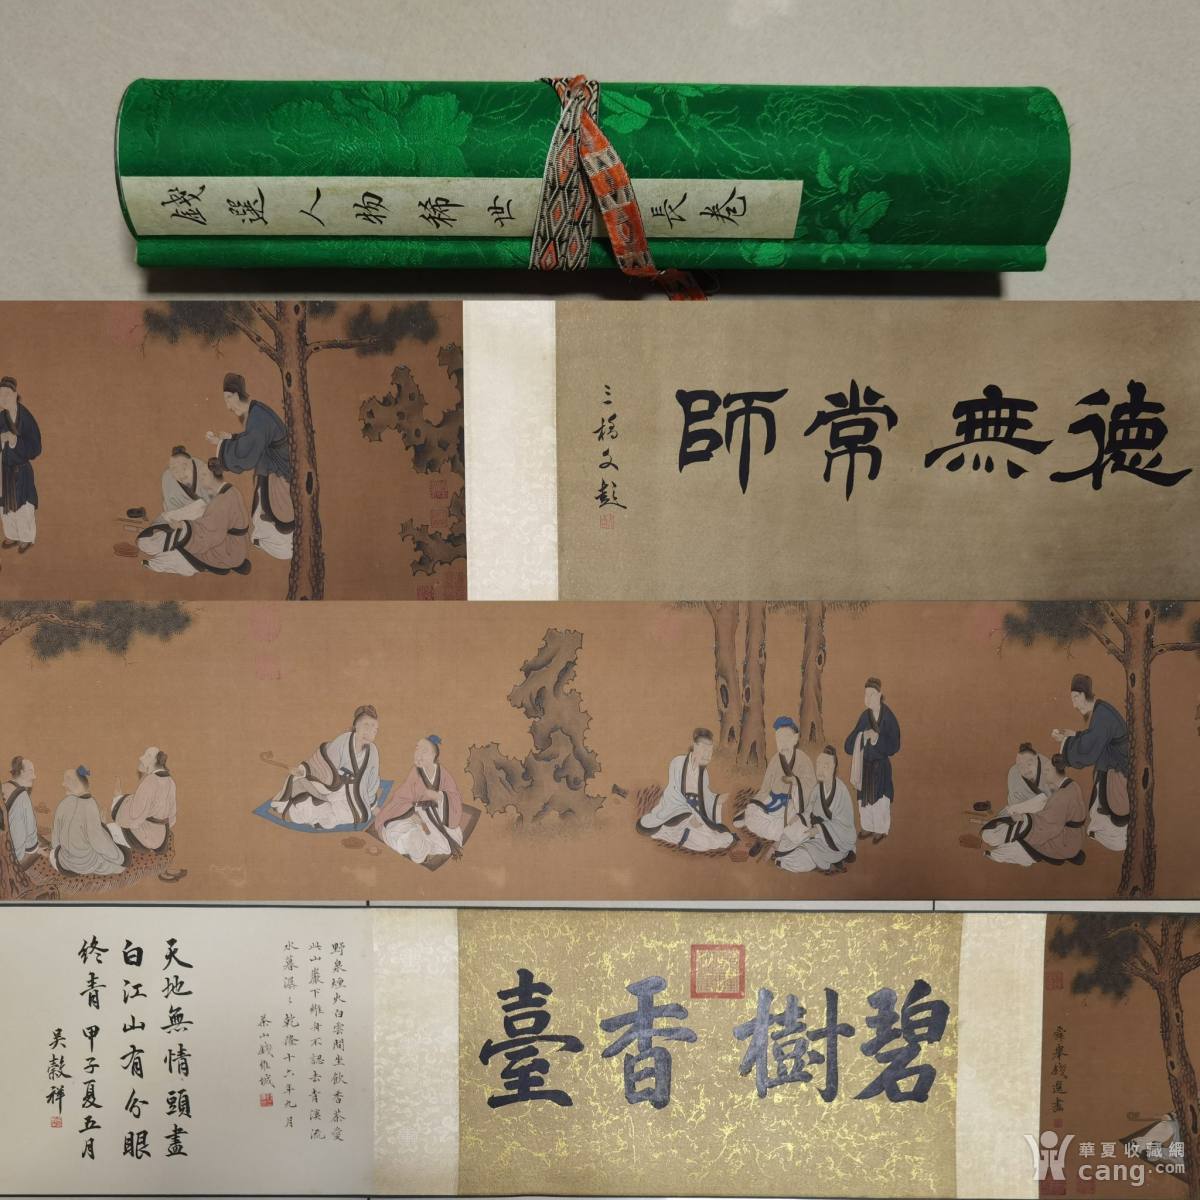 錢選人物稀世
長卷
德無常師
三橋文彭
碧樹香臺
舜舉錢選畫
野泉煙火白雲間坐飲香茶愛
此山巖下維舟不認去青溪流
水暮潺々乾隆十六年九月
茶山錢維城
天地無情頭盡
白江山有分眼
終青甲子夏五月
吳榖祥
華夏收藏網
cang.com